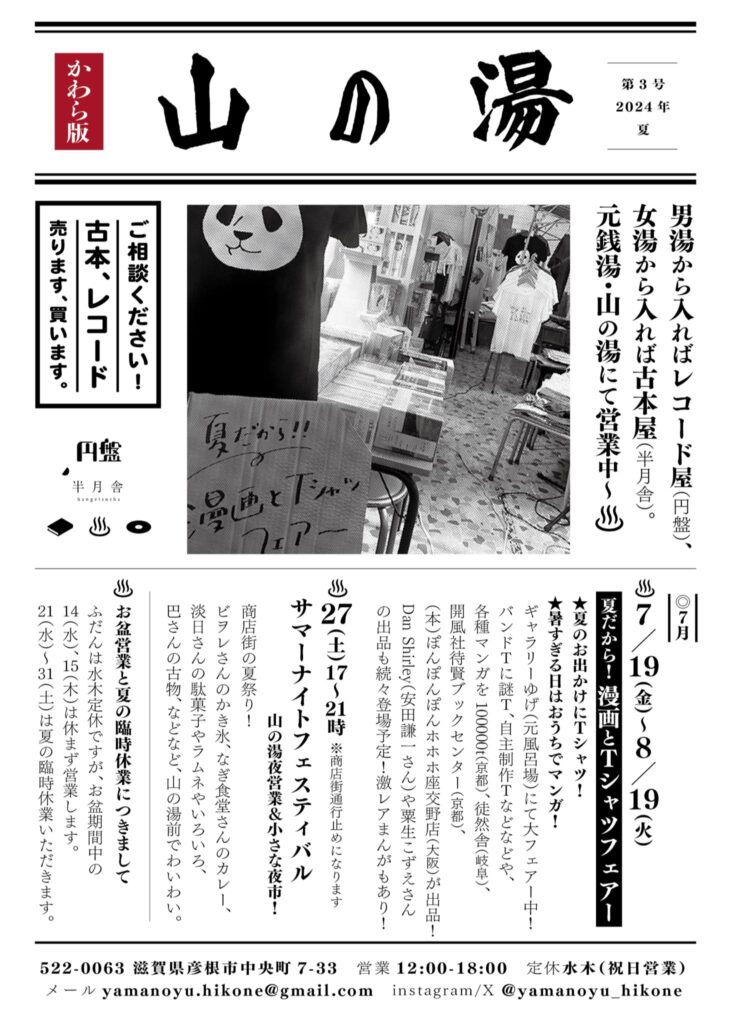 かわら版
山の湯
第3号
2024年
夏
男湯から入ればレコード屋(円盤)、
女湯から入れば古本屋(半月舎)。
元銭湯・山の湯にて営業中〜♨
夏だから!!
の
漫画とTシャツ
フェアー
ご相談ください!
古本、レコード
売ります、買います。
円盤
半月舎
hangetsusha
◎7月
♨7/19(金)〜8/19(火)
夏だから!漫画とTシャツフェアー
★夏のお出かけにTシャツ!
★暑すぎる日はおうちでマンガ!
ギャラリーゆげ(元風呂場)にて大フェアー中!
バンドTに謎T、自主制作Tなどなどや、
各種マンガを100000t(京都)、徒然舎(岐阜)、
開風社待賢ブックセンター(京都)、
(本)ぽんぽんぽんホホホ座交野店(大阪)が出品!
Dan Shirley(安田謙一さん)や粟生こずえさん
の出品も続々登場予定!激レアまんがもあり!
♨27(土)17〜21時 ※商店街通行止めになります
サマーナイトフェスティバル
山の湯夜営業&小さな夜市!
商店街の夏祭り!
ビヲレさんのかき氷、なぎ食堂さんのカレー、
淡日さんの駄菓子やラムネやいろいろ、
巴さんの古物、などなど、山の湯前でわいわい。
♨お盆営業と夏の臨時休業につきまして
ふだんは水木定休ですが、お盆期間中の
14(水)、15(木)は休まず営業します。
21(水)〜31(土)は夏の臨時休業いただきます。
522-0063 滋賀県彦根市中央町 7-33 営業 12:00-18:00 定休水木(祝日営業)
メール yamanoyu.hikone@gmail.com instagram/X @yamanoyu_hikone